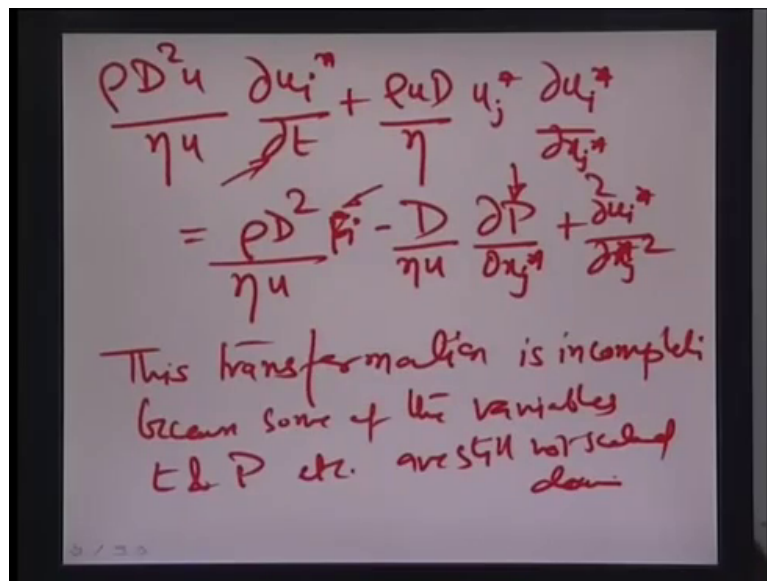 ρD²u/ηu ∂ui*/∂t + ρuD/η uj* ∂ui*/∂xj*
= ρD²/ηu fi - D/ηu ∂P/∂xj* + ∂²ui*/∂xj*²
This transformation is incomplete
because some of the variables
t & P etc. are still not scaled
down